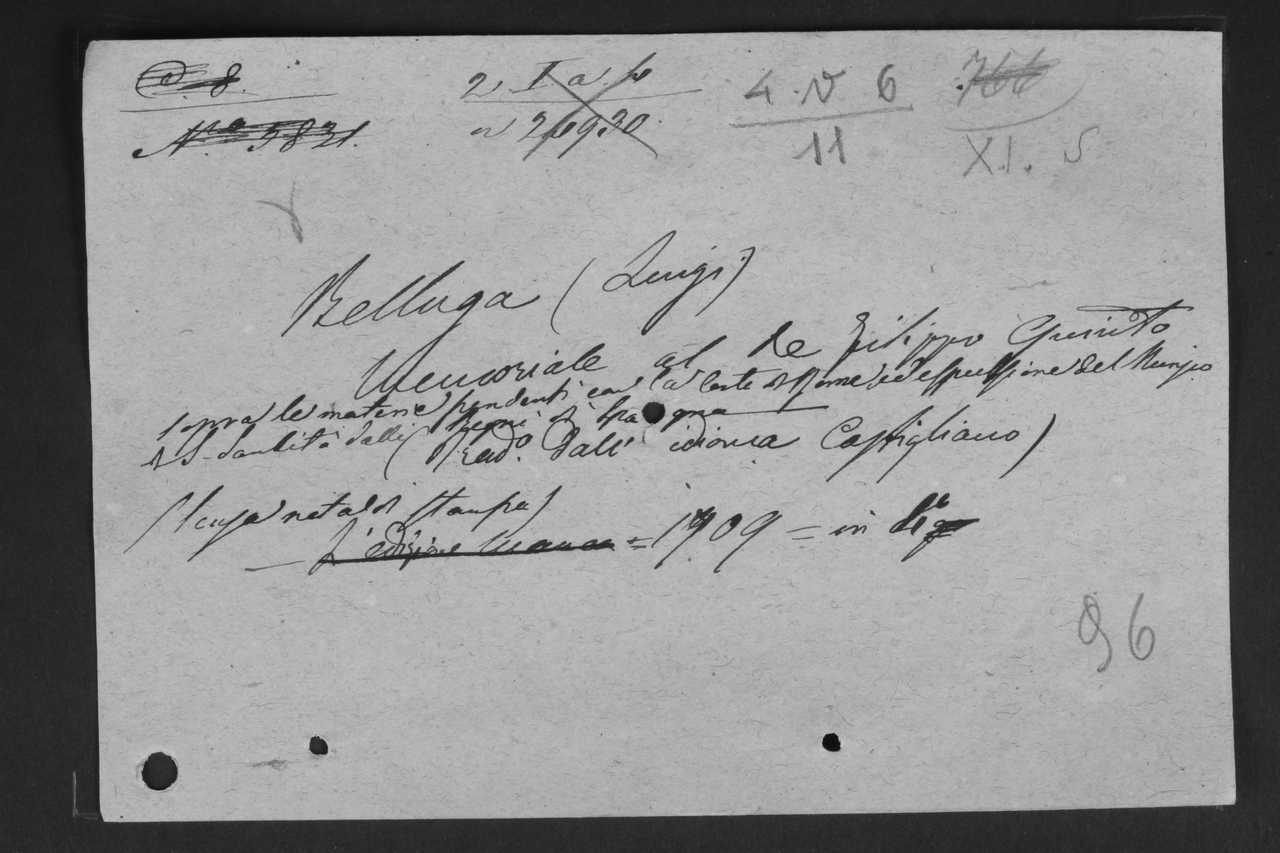 C. 8.
N.o 5831.
4. V 6
11
766
XI. S
Belluga (Luigi)
Memoriale al Re Filippo Quinto
sopra le materie pendenti con la Corte di Roma ed espulsione del Nunzio
di S. Santità dalli Regni di Spagna
(Trado. dall' idioma Castigliano)
(senza nota di stampa)
— L'edizione Romana = 1709 = in
96